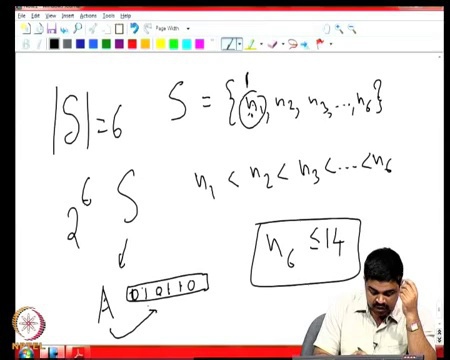 File Edit View Insert Actions Tools Help
Page Width
1
|S| = 6
S = {n₁, n₂, n₃, ..., n₆}
n₁ < n₂ < n₃ < ... < n₆
2⁶ S
n₆ ≤ 14
A 010110